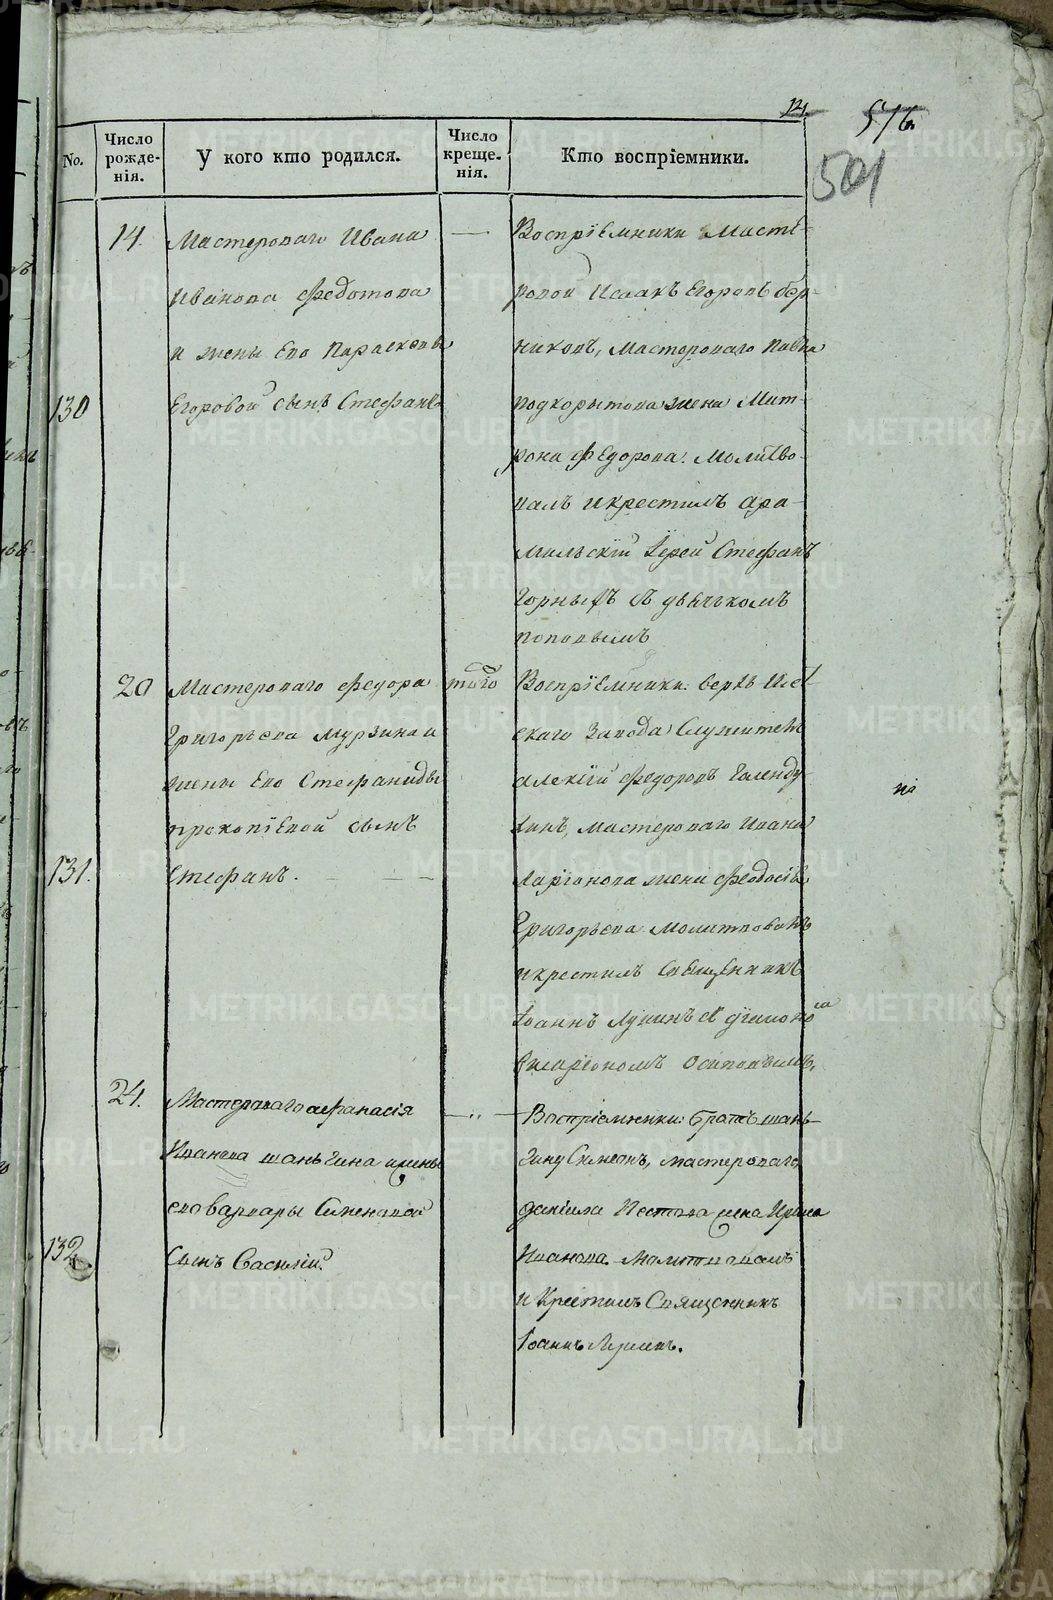 14.
516.
501
No.
Число рожденія.
У кого кто родился.
Число крещенія.
Кто воспріемники.
14.
Мастероваго Ивана
Иванова Федотова
и жены Его Параскевы
130
Егоровой сынъ Стефанъ
Воспріемники Масте-
ровой Исаакъ Егоровъ бер-
никовъ, Мастероваго Павла
подкорытова жена Мат-
рона Федорова. Молитво-
валъ и крестилъ Ара-
мильскій Іерей Стефанъ
Горныхъ съ дьячькомъ
поповымъ
20
Мастероваго Федора
Григорьева Мурзина и
жены Его Стефаниды
прокопіевой сынъ
131.
Стефанъ.
того
Воспріемники: верхъ Исет
скаго Завода Служитель
Алексій Федоровъ
Мастероваго Ивана
Ларіонова жена Феодосія
Григорьева Молитвовалъ
и крестилъ Священникъ
Іоаннъ Лукинъ съ
Осиповымъ,
24.
Мастероваго Афанасія
Иванова Шаньгина и жены
его Варвары Симеоновой
132.
Сынъ Василій.
Воспріемники: братъ шань-
гину Симеонъ, мастероваго
Даніила жена Ирина
Иванова. Молитвовалъ
и Крестилъ Священникъ
Іоаннъ Лукинъ.
METRIKI.GASO-URAL.RU